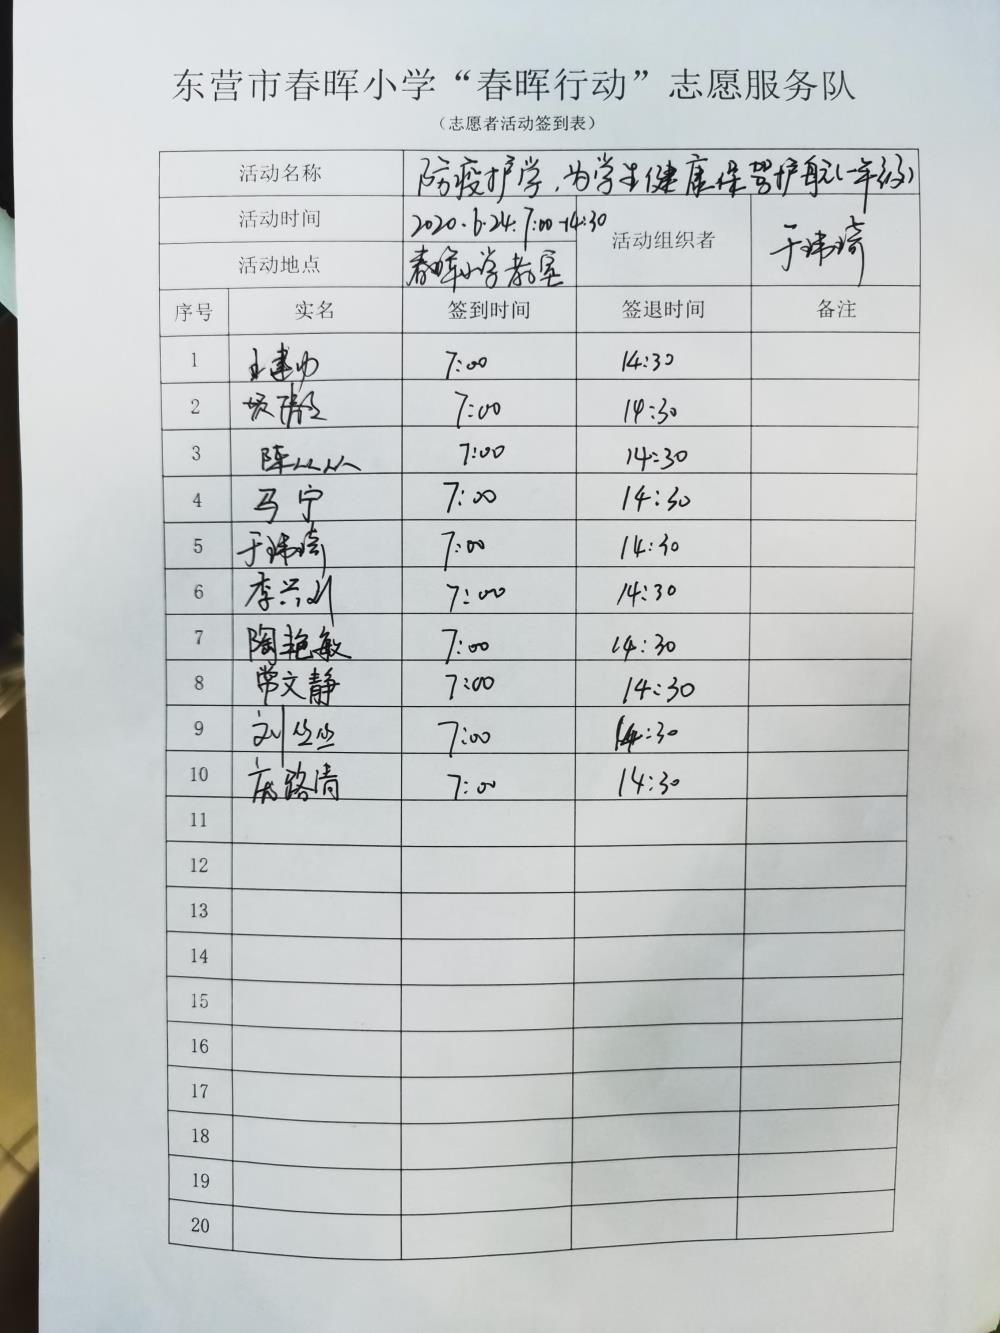 东营市春晖小学“春晖行动”志愿服务队
（志愿者活动签到表）
活动名称 防疫护学,为学生健康保驾护航(一年级)
活动时间 2020.6.24. 7:00-14:30 活动组织者 于玮琦
活动地点 春晖小学教室
序号 实名 签到时间 签退时间 备注
1 7:00 14:30
2 7:00 14:30
3 陈从从 7:00 14:30
4 马宁 7:00 14:30
5 于玮琦 7:00 14:30
6 李兴 7:00 14:30
7 陶艳敏 7:00 14:30
8 常文静 7:00 14:30
9 刘丝丝 7:00 14:30
10 路清 7:00 14:30
11
12
13
14
15
16
17
18
19
20